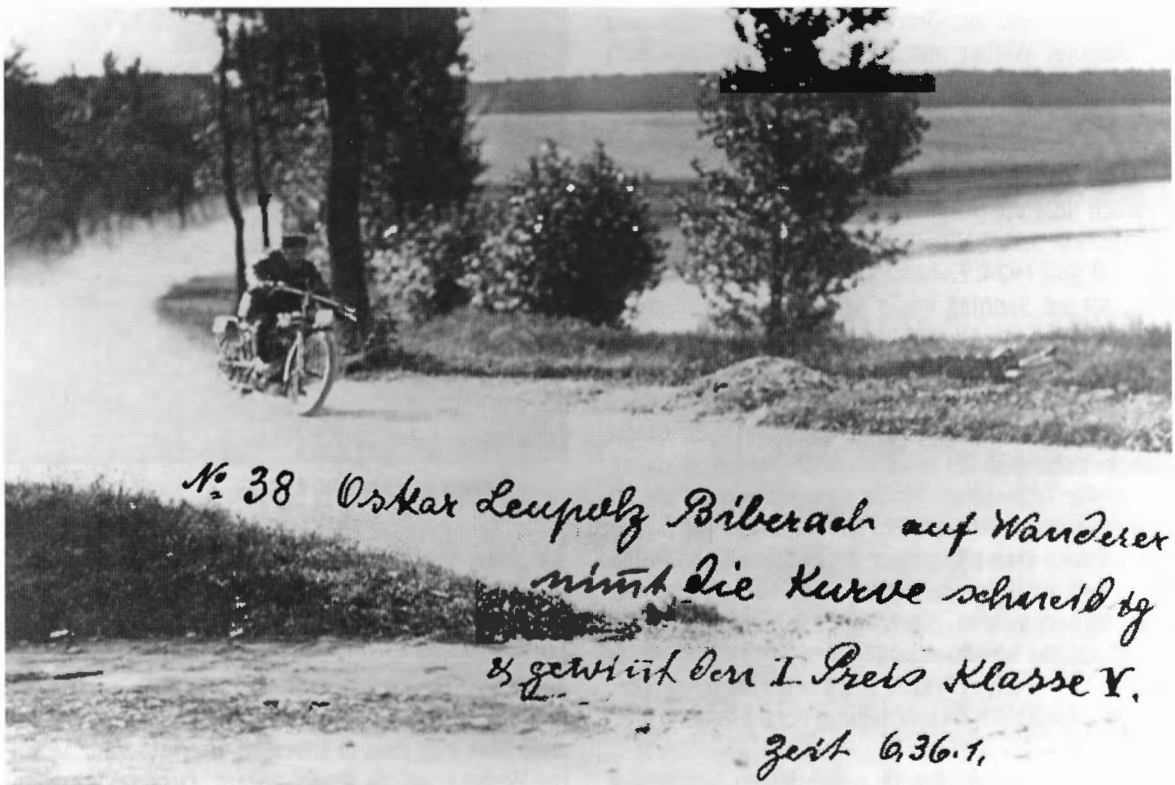 № 38 Oskar Leupolz Biberach auf Wanderer
nim̄t die Kurve schneidig
& gewin̄t den I. Preis Klasse V.
Zeit 6.36.1.